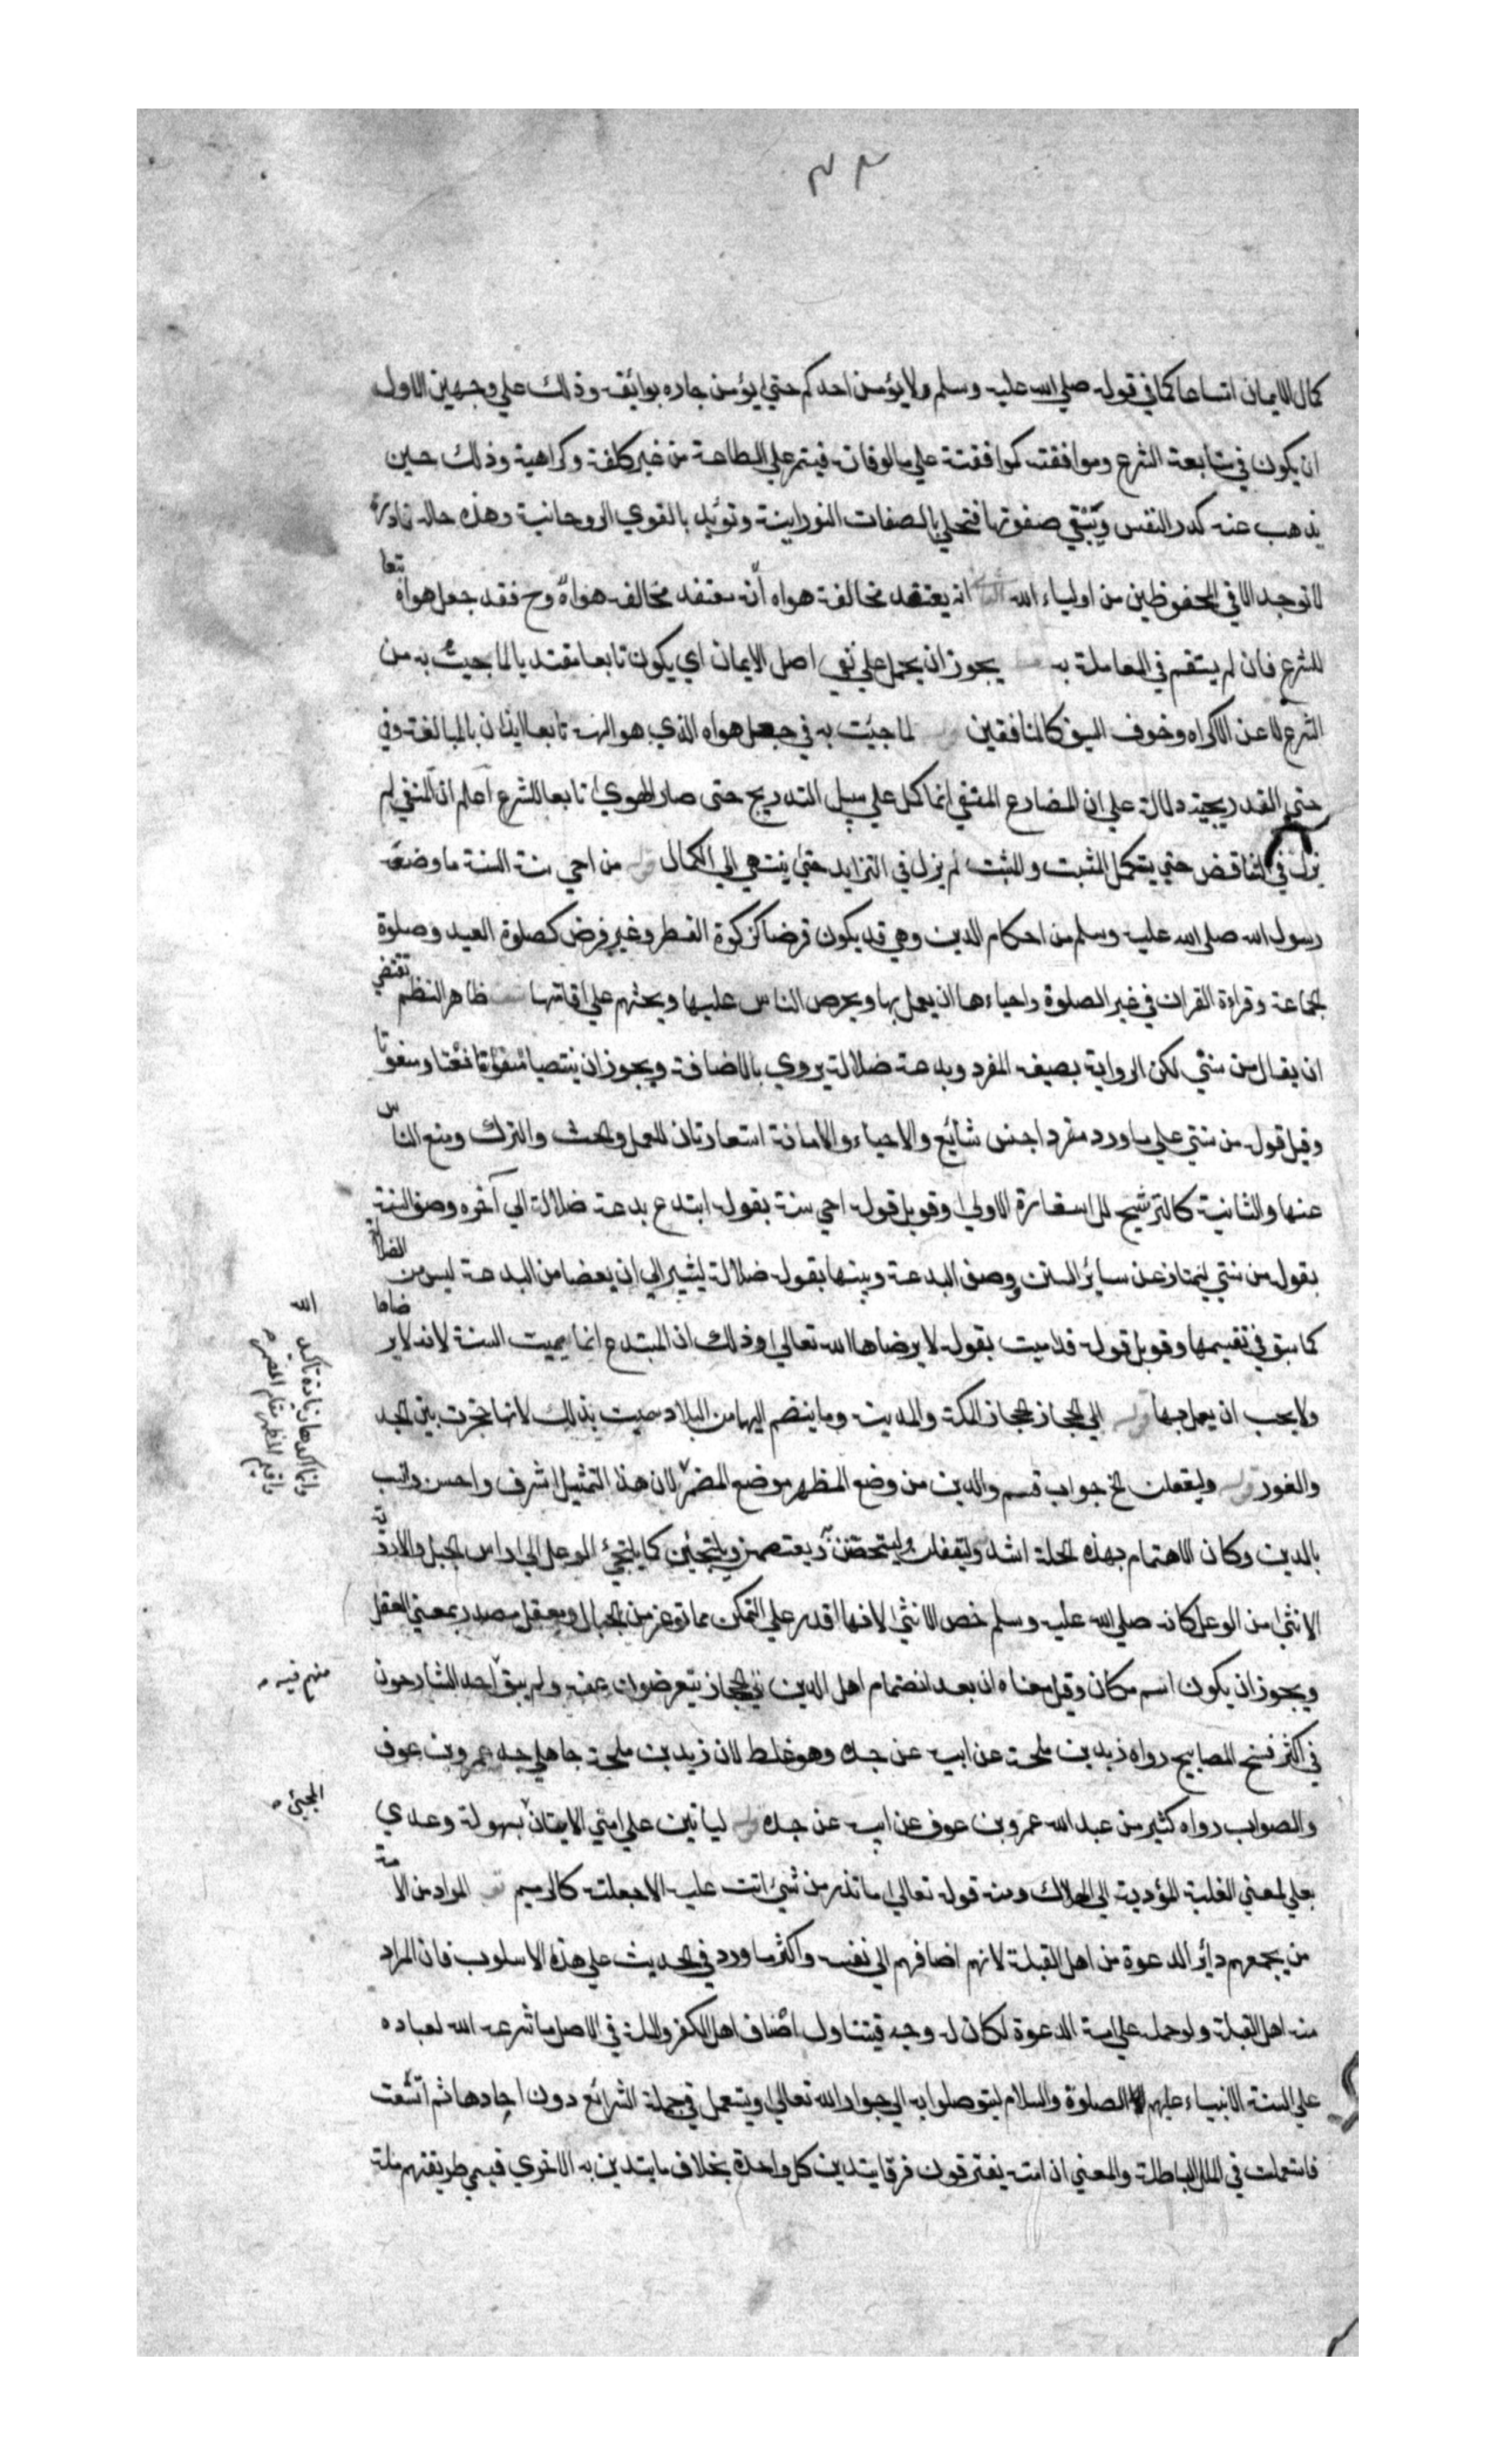 ٣٤
كمال الايمان اتساعا كما في قوله صلي الله عليه وسلم ولا يؤمن احدكم حتي يؤمن جاره بوائقه وذلك علي وجهين الاول
ان يكون في متابعة الشرع وموافقته كموافقته علي مالوفاته فيتم علي الطاعة من غير كلفة وكراهية وذلك حين
يذهب عنه كدر النفس وتبقي صفوتها فتحلي بالصفات النورانية وتؤيد بالقوي الروحانية وهذه حالة نادرة
لا توجد الا في المحفوظين من اولياء الله ان يعتقد مخالفة هواه انه يعتقد مخالفه هواه وح فقد جعل هواه تبعا
للشرع فان لم يستقم في المعاملة به يجوز ان يحمل علي نفي اصل الايمان اي يكون تابعا مقتديا لما جيت به من
الشرع لا عن الاكراه وخوف السيف كالمنافقين لما جيت به في جعل هواه الذي هو الهه تابعا ايذان بالمبالغة وفي
حتي التدريجية دلالة علي ان المضارع المنفي انما كمل علي سبيل التدريج حتى صار الهوي تابعا للشرع اعلم ان المنفي لم
يزل في التناقض حتي يتكمل المثبت والمثبت لم يزل في التزايد حتي ينتهي الي الكمال من احي سنة السنة ما وضعه
رسول الله صلى الله عليه وسلم من احكام الدين وهي قد يكون فرضا كزكوة الفطر وغير فرض كصلوة العيد وصلوة
الجماعة وقراءة القران في غير الصلوة واحياءها ان يعمل بها ويحرص الناس عليها ويحثهم علي اقامتها ظاهر النظم يقتضي
ان يقال من سنني لكن الرواية بصيغه المفرد وبدعة ضلالة يروي بالاضافة ويجوز ان ينتصبا نعتا ومنعوتا
وقيل قوله من سنتي علي ما ورد مفردا جنس شائع والاحياء والاماتة استعارتان للعمل والحث والترك ومنع الناس
عنها والثانية كالترشيح للاستعارة الاولي وقوبل قوله احي سنة بقوله ابتدع بدعة ضلالة الي آخره وصف السنة
بقوله من سنتي ليمتاز عن سائر السنن وصف البدعة وبينها بقوله ضلالة ليشير الي ان بعضا من البدعة ليس من الضلالة
كما سبق في تقسيمها وقوبل قوله قد اميت بقوله لا يرضاها الله تعالي وذلك ان المبتدع انما يميت السنة لانه لا يرضاها
ولا يحب ان يعمل بها الي الحجاز الحجاز المكة والمدينة وما ينضم اليها من البلاد سميت بذلك لانها حجزت بين النجد
والغور وليعقلن الخ جواب قسم والدين من وضع المظهر موضع المضمر لان هذا التمثيل اشرف واحسن وانسب
بالدين وكان الاهتمام بهذه الجملة اشد وليعقلن وليتحصنن ويعتصمن ويلتجئن كما يلتجئ الوعل الي راس الجبل والاروية
الانثى من الوعل كانه صلي الله عليه وسلم خص الانثى لانها اقدر علي التمكن مما توعر من الجبال ومعقل مصدر بمعني العقل
ويجوز ان يكون اسم مكان وقيل معناه ان بعد انضمام اهل الدين الي الحجاز يتعرضون عنه ولم يبق احد الشارحون
في اكثر نسخ المصابيح رواه زيد بن ملحة عن ابيه عن جده وهو غلط لان زيد بن ملحة جاهلي جد عمرو بن عوف
والصواب رواه كثير من عبد الله عمرو بن عوف عن ابيه عن جده لياتين علي امتي الاتيان بسهولة وعدي
بعلي لمعني الغلبة المؤدية الي الهلاك ومنه قوله تعالي ما تذر من شيئ اتت عليه الا جعلته كالرميم المراد من الامة
من يجمعهم دائر الدعوة من اهل القبلة لانهم اضافهم الي نفسه واكثر ما ورد في الحديث علي هذا الاسلوب فان المراد
منه اهل القبلة ولو حمل علي امة الدعوة لكان له وجه فيتناول اصناف اهل الكفر والملة في الاصل ما شرعه الله لعباده
علي السنة الانبياء عليهم الصلوة والسلام ليتوصلوا به الي جوار الله تعالي ويستعمل في جملة الشرائع دون احادها ثم اتسعت
فاستعملت في الملل الباطلة والمعني ان امته يفترقون فرقا يتدين كل واحدة بخلاف ما يتدين به الاخري فيسمي طريقتهم ملة
وانما اكدها زيادة تاكيد الله
واقيم المظهر مقام المضمر
منهم فيه
المجيئ